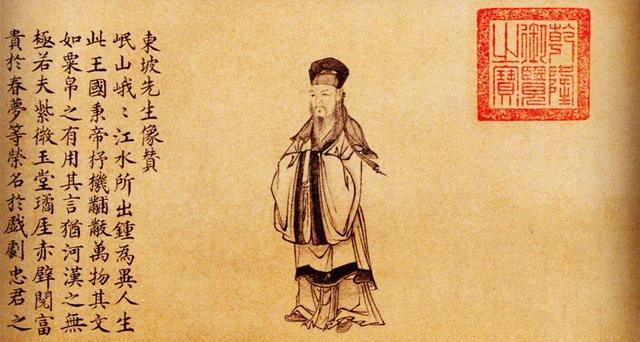 東坡先生像贊
岷山峨〻江水所出鍾為異人生
此王國秉帝杼機黼黻萬物其文
如粟帛之有用其言猶河漢之無
極若夫紫微玉堂璚厓赤壁閱富
貴於春夢等榮名於戲劇忠君之
乾隆
御覽
之寶